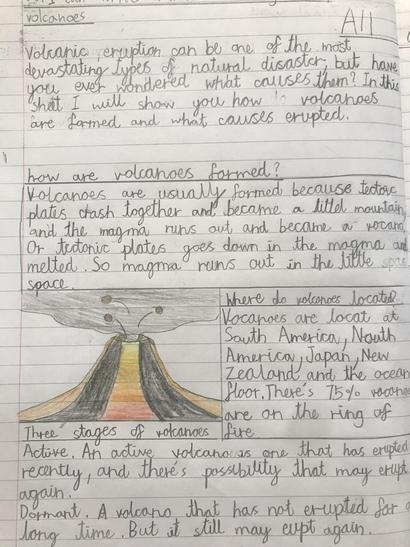 volcanoes
A11
Volcanic eruption can be one of the most
devastating types of natural disaster, but have
you ever wondered what causes them? In this
sheet I will show you how volcanoes
are formed and what causes erupted.
how are volcanoes formed?
Volcanoes are usually formed because tectonic
plates crash together and became a littel mountain,
and the magma runs out and became a
Or tectonic plates goes down in the magma and
melted. So magma runs out in the little
space.
Where do volcanoes located?
Vocanoes are locat at
South America, North
America, Japan, New
Zealand and the ocean
floor. There's 75%
are on the ring of
fire.
Three stages of volcanoes
Active. An active volcano is one that has erupted
recently, and there's possibility that may erupt
again.
Dormant. A volcano that has not erupted for a
long time. But it still may eupt again.